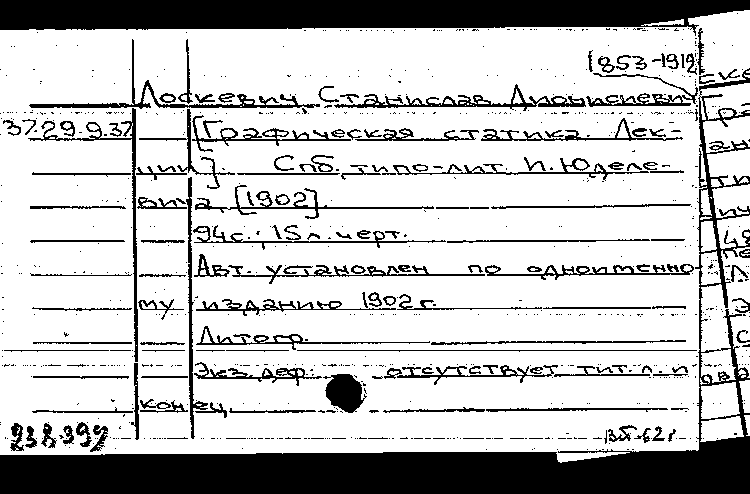 1853-1912
Лоскевич, Станислав Дионисиевич
37.29.9.37 [Графическая статика. Лек-
ции]. Спб, типо-лит. И. Юделе-
вича, [1902].
94с.; 15л. черт.
Авт. установлен по одноименно-
му изданию 1902 г.
Литогр.
Экз. деф.: отсутствует тит. л. и
конец.
238399